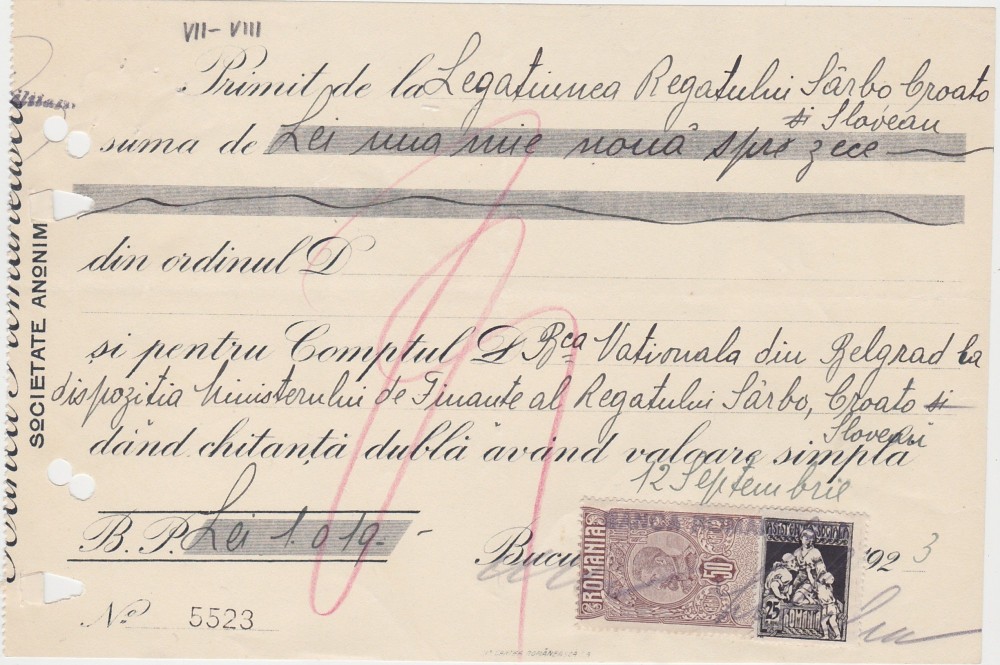 VII - VIII
Primit de la Legatiunea Regatului Sârbo Croato
si Sloveau
suma de Lei una mie nouă spre zece
din ordinul D
și pentru Comptul D Bca Nationala din Belgrad la
dispozitia Ministerului de Finante al Regatului Sârbo, Croato si
Sloveau
dând chitanță dublă având valoare simplă
12 Septembrie
B. P. Lei 1.019.-
Bucu 1923
ROMANIA
50
ASISTENTA SOCIALA
25
ROMANIA
No 5523
SOCIETATE ANONIM